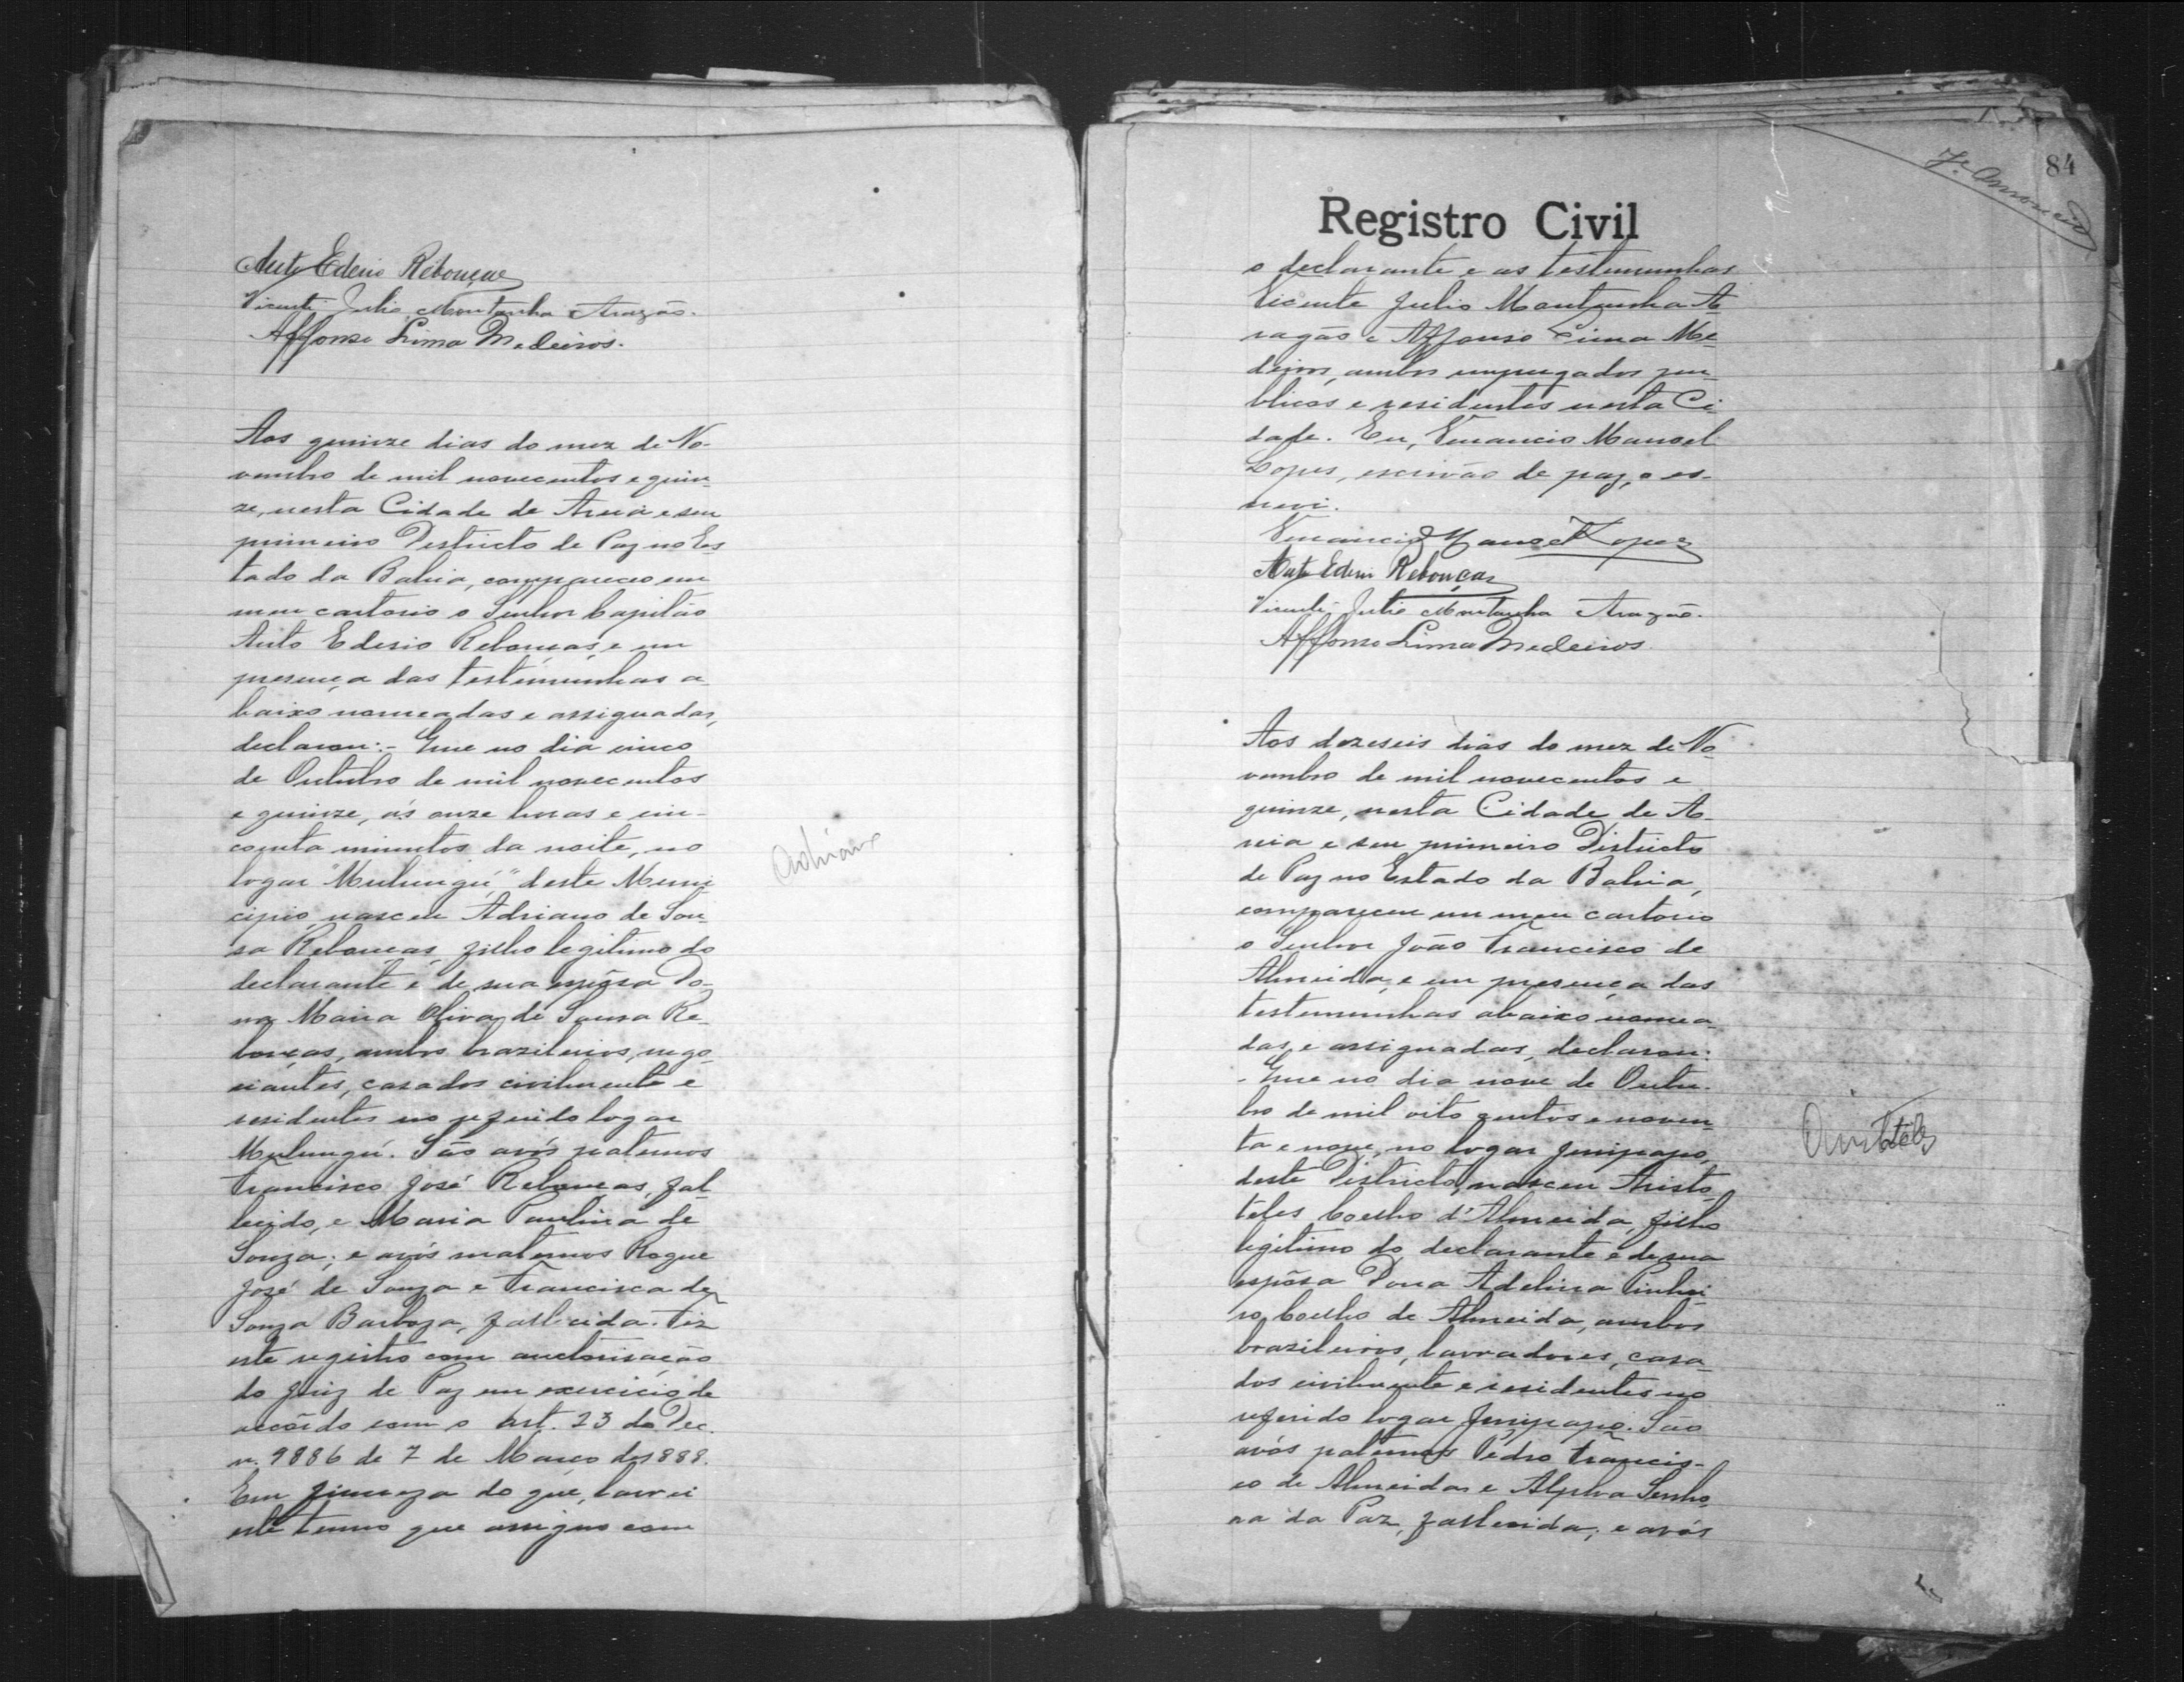 Auto Ederio Rebouças
Vicente Julio Montanha Aragão.
Affonso Lima Medeiros.
Aos quinze dias do mez de No-
vembro de mil novecentos e quin-
ze, nesta Cidade de Areia e seu
primeiro Districto de Paz no Es
tado da Bahia, compareceo em
meu cartorio o Senhor Capitão
Auto Ederio Rebouças, e em
presença das testemunhas a-
baixo nomeadas e assignadas,
declarou:- Que no dia cinco
de Outubro de mil novecentos
e quinze, ás onze horas e cin-
coenta minutos da noite, no
logar "Mulungú", deste Muni
cipio, nasceu Adriano de Sou-
sa Rebouças, filho legitimo do
declarante e de sua espôsa Do-
na Maria Oliva de Sousa Re-
bouças, ambos brazileiros, nego-
ciantes, casados civilmente e
residentes no referido logar
Mulungú. São avós paternos
Francisco José Rebouças, fal-
lecido, e Maria Paulina de
Souza; e avós maternos Roque
José de Souza e Francisca de
Souza Barboza, fallecida. Fiz
este registro com auctorisação
do Juiz de Paz em exercicio, de
accôrdo com o Art. 23 do Dec.
n. 9886 de 7 de Março de 1888.
Em firmeza do que, lavrei
este termo que assigno com
Adriano
84
Registro Civil
o declarante e as testemunhas
Vicente Julio Montanha A-
ragão e Affonso Lima Me-
deiros, ambos empregados pu-
blicos e residentes nesta Ci-
dade. Eu, Venancio Manoel
Lopes, escrivão de paz, o es-
crevi.
Venancio Manoel Lopes
Auto Ederio Rebouças
Vicente Julio Montanha Aragão.
Affonso Lima Medeiros.
Aos dezeseis dias do mez de No-
vembro de mil novecentos e
quinze, nesta Cidade de A-
reia e seu primeiro Districto
de Paz no Estado da Bahia,
compareceu em meu cartorio
o Senhor João Francisco de
Almeida, e em presença das
testemunhas abaixo nomea-
das e assignadas, declarou:
- Que no dia nove de Outu-
bro de mil oito centos e noven-
ta e nove, no logar Jenipapo,
deste Districto, nasceu Aristo-
teles Coelho d'Almeida, filho
legitimo do declarante e de sua
espôsa Dona Adelina Pinhei-
ro Coelho de Almeida, ambos
brazileiros, lavradores, casa-
dos civilmente e residentes no
referido logar Jenipapo. São
avós paternos Pedro Francis-
co de Almeida e Alpha Senho
ra da Paz, fallecida; e avós